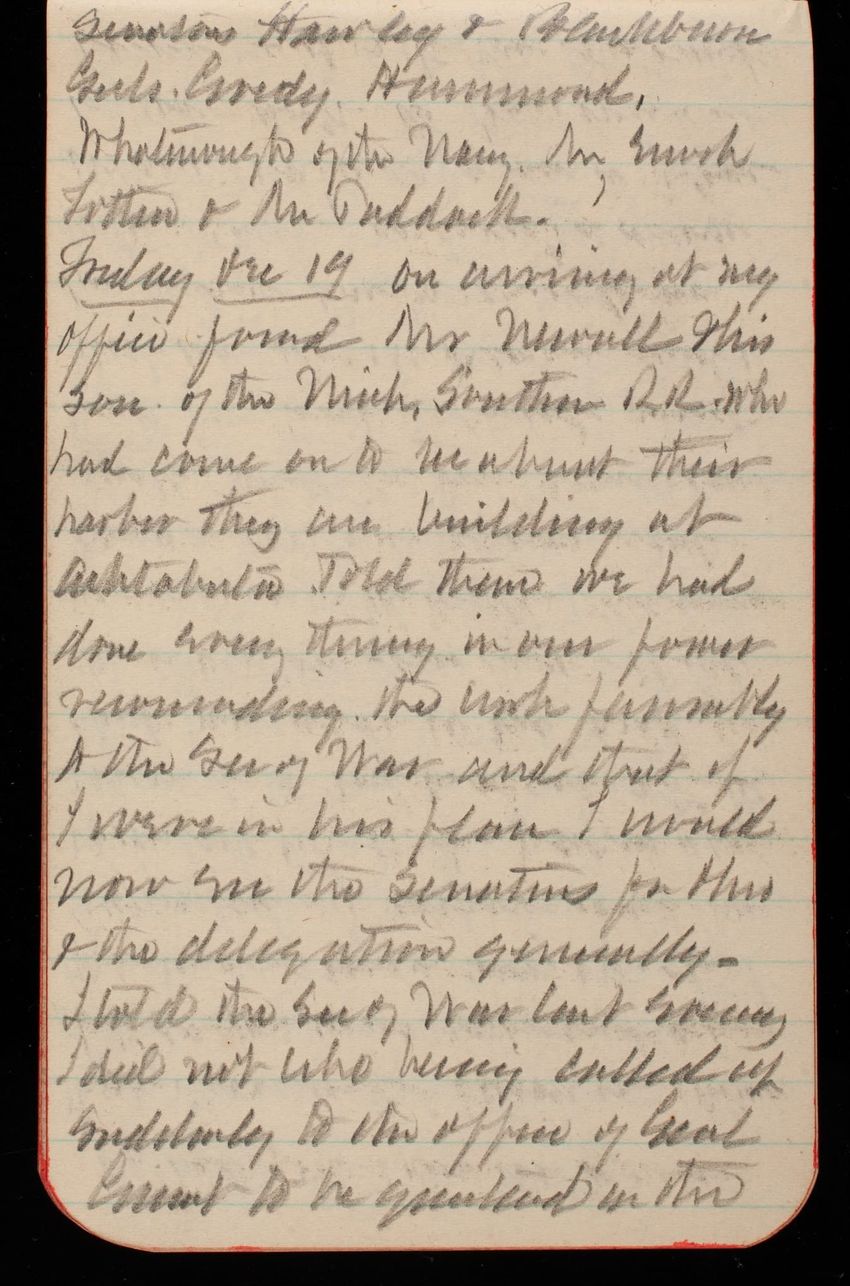 Senators Hawley & Blackburn
Genls. Greely. Hammond,
Whatmough of the Navy. Mr, Enoch
Totten & Mr Paddock.
Friday Dec 19 on arriving at my
office found Mr Newall & his
son. of the Mich, Southern R.R. who
had come on to see about their
harbor they are building at
Ashtabula Told them we had
done every thing in our power
recommending the work favorably
to the Sec of War and that if
I were in his place I would
now see the Senators for Ohio
& the delegation generally -
I told the Sec of War last evening
I did not like being called up
suddenly to the office of Genl
to be questioned in the